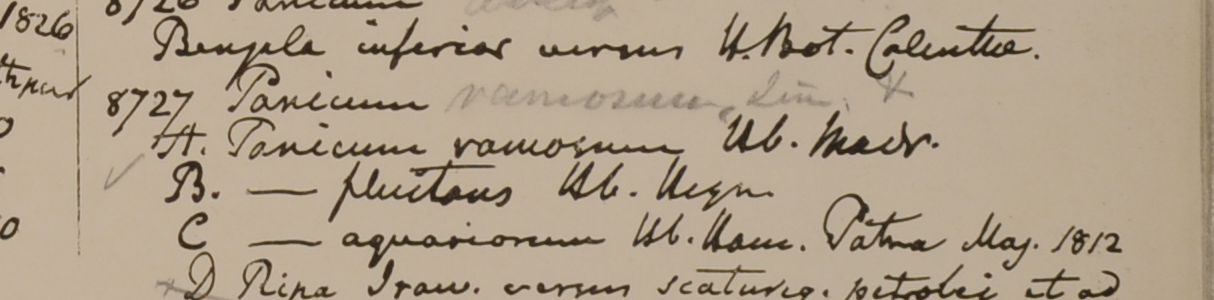 1826
8726 Panicum
Bengala inferior versus H. Bot. Calcuttae.
8727 Panicum ramosum, Lin. +
A. Panicum ramosum Hb. Madr.
B. — fluitans Hb. Heyn
C — aquariorum Hb. Ham. Patna Maj. 1812
D Ripa Iraw. versus scaturig. petrolei et ad